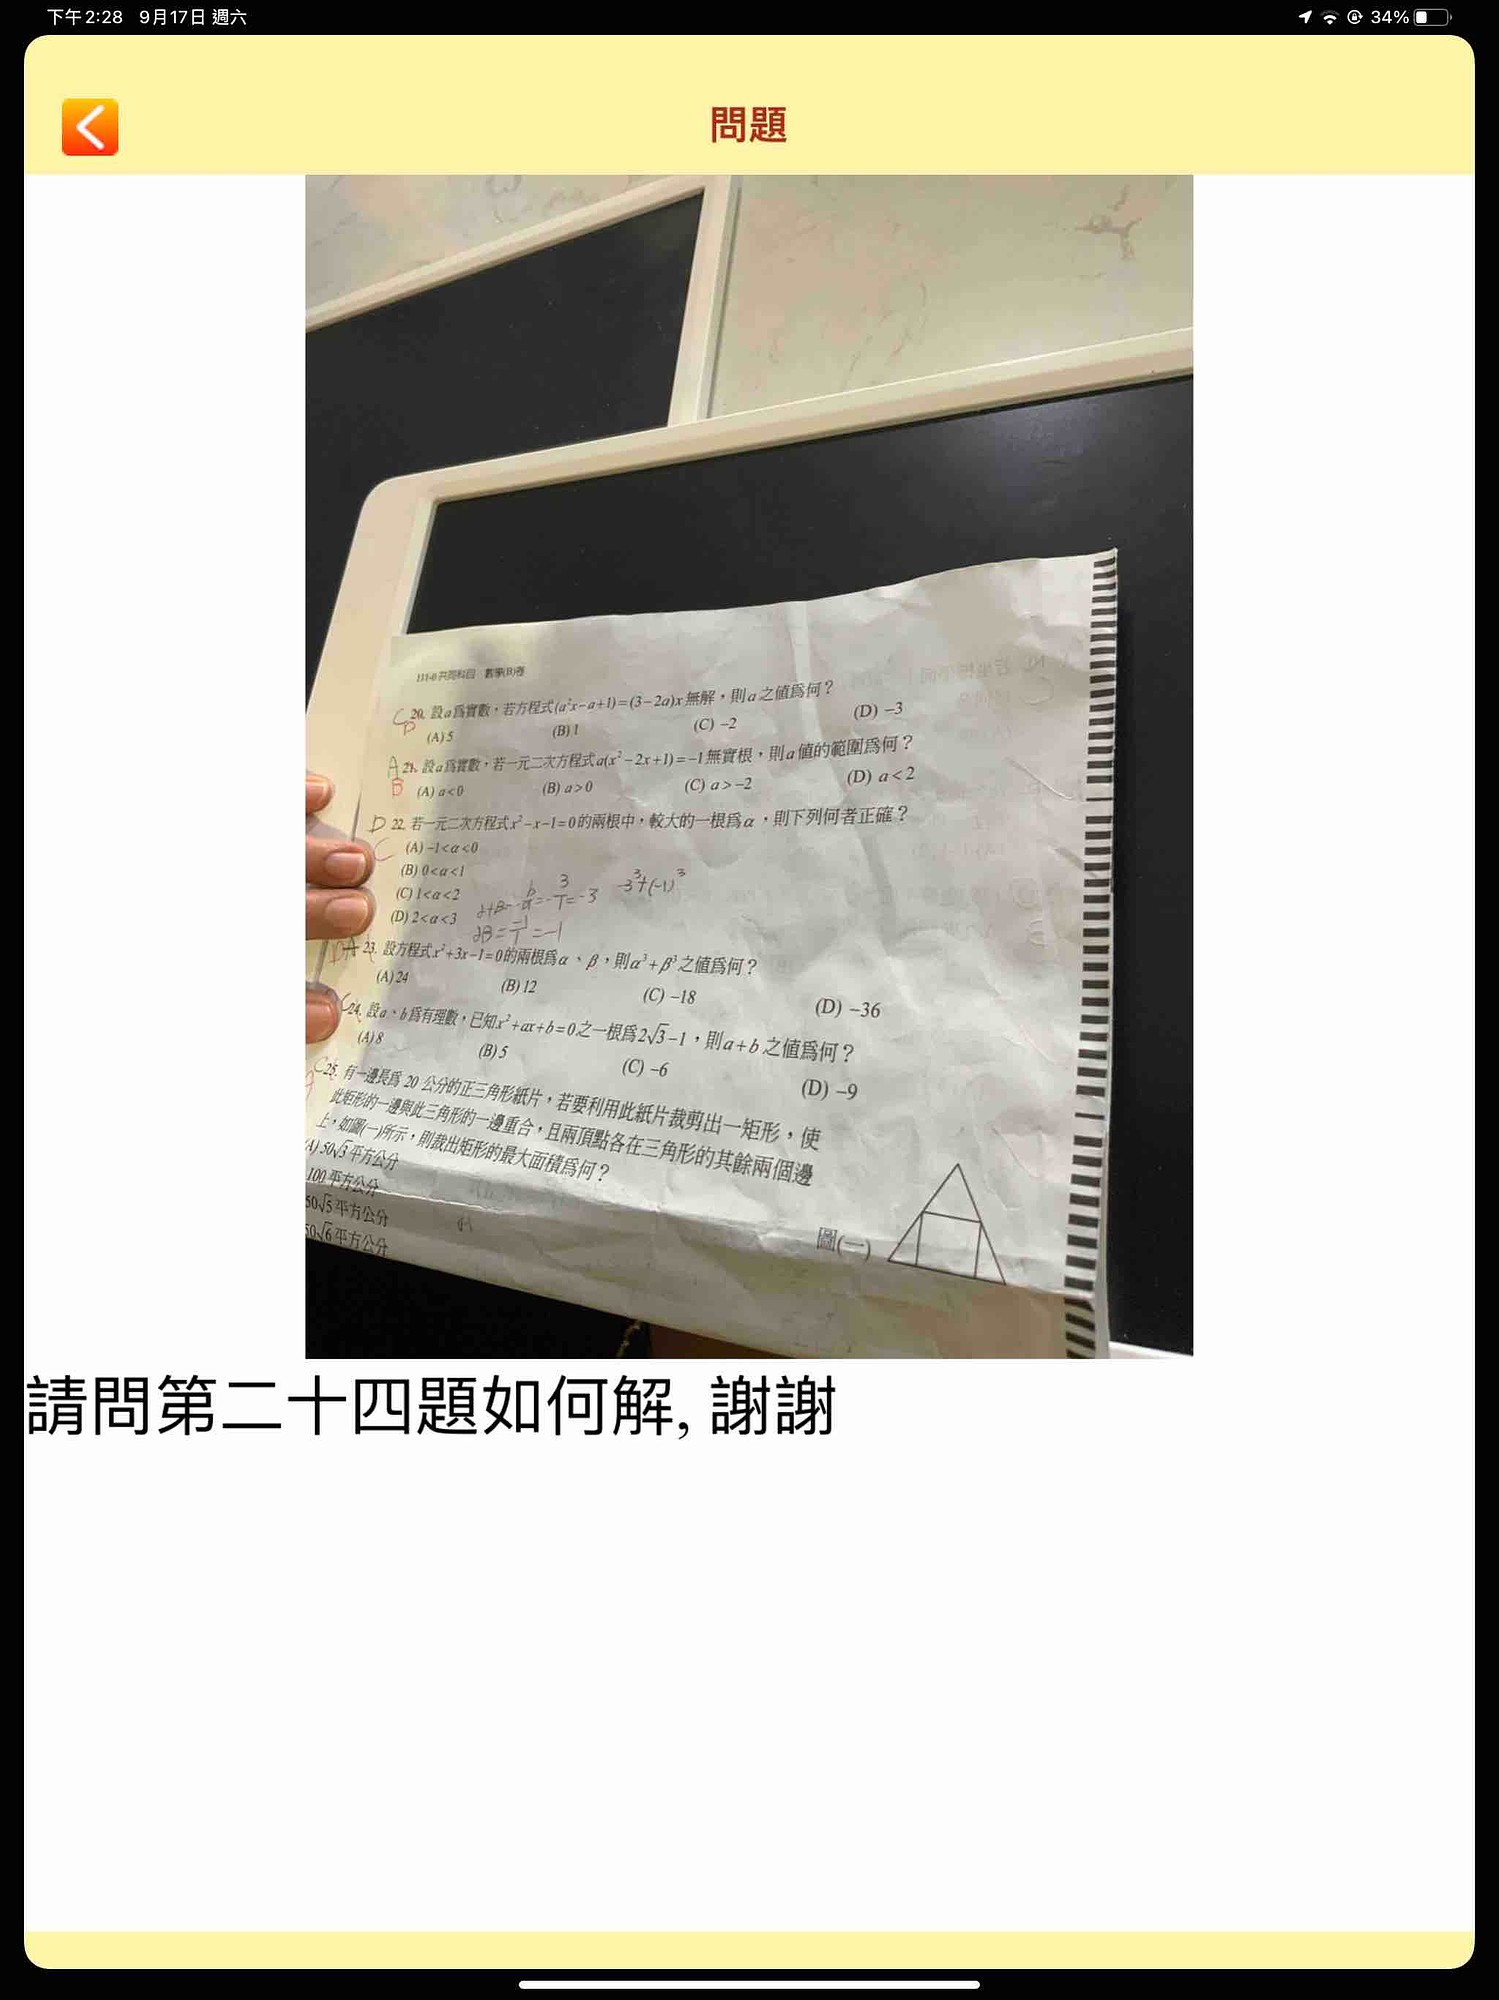 下午2:28 9月17日 週六
34%
問題
111-B共同科目 數學(B)卷
C 20. 設a爲實數，若方程式(a²x-a+1)=(3-2a)x無解，則a之値爲何？
D
(A) 5 (B) 1 (C) -2 (D) -3
A 21. 設a爲實數，若一元二次方程式a(x²-2x+1)=-1無實根，則a値的範圍爲何？
B (A) a<0 (B) a>0 (C) a>-2 (D) a<2
D 22. 若一元二次方程式x²-x-1=0的兩根中，較大的一根爲α，則下列何者正確？
C (A) -1<α<0
(B) 0<α<1
(C) 1<α<2
(D) 2<α<3
α+β=-b/a=-3/1=-3 -3³+(-1)³
αβ=-1/1=-1
DA 23. 設方程式x²+3x-1=0的兩根爲α、β，則α³+β³之値爲何？
(A) 24 (B) 12 (C) -18 (D) -36
C 24. 設a、b爲有理數，已知x²+ax+b=0之一根爲2√3-1，則a+b之値爲何？
(A) 8 (B) 5 (C) -6 (D) -9
C 25. 有一邊長爲 20 公分的正三角形紙片，若要利用此紙片裁剪出一矩形，使
此矩形的一邊與此三角形的一邊重合，且兩頂點各在三角形的其餘兩個邊
上，如圖(一)所示，則裁出矩形的最大面積爲何？
A) 50√3平方公分
100平方公分
50√5平方公分
50√6平方公分
圖(一)
請問第二十四題如何解, 謝謝